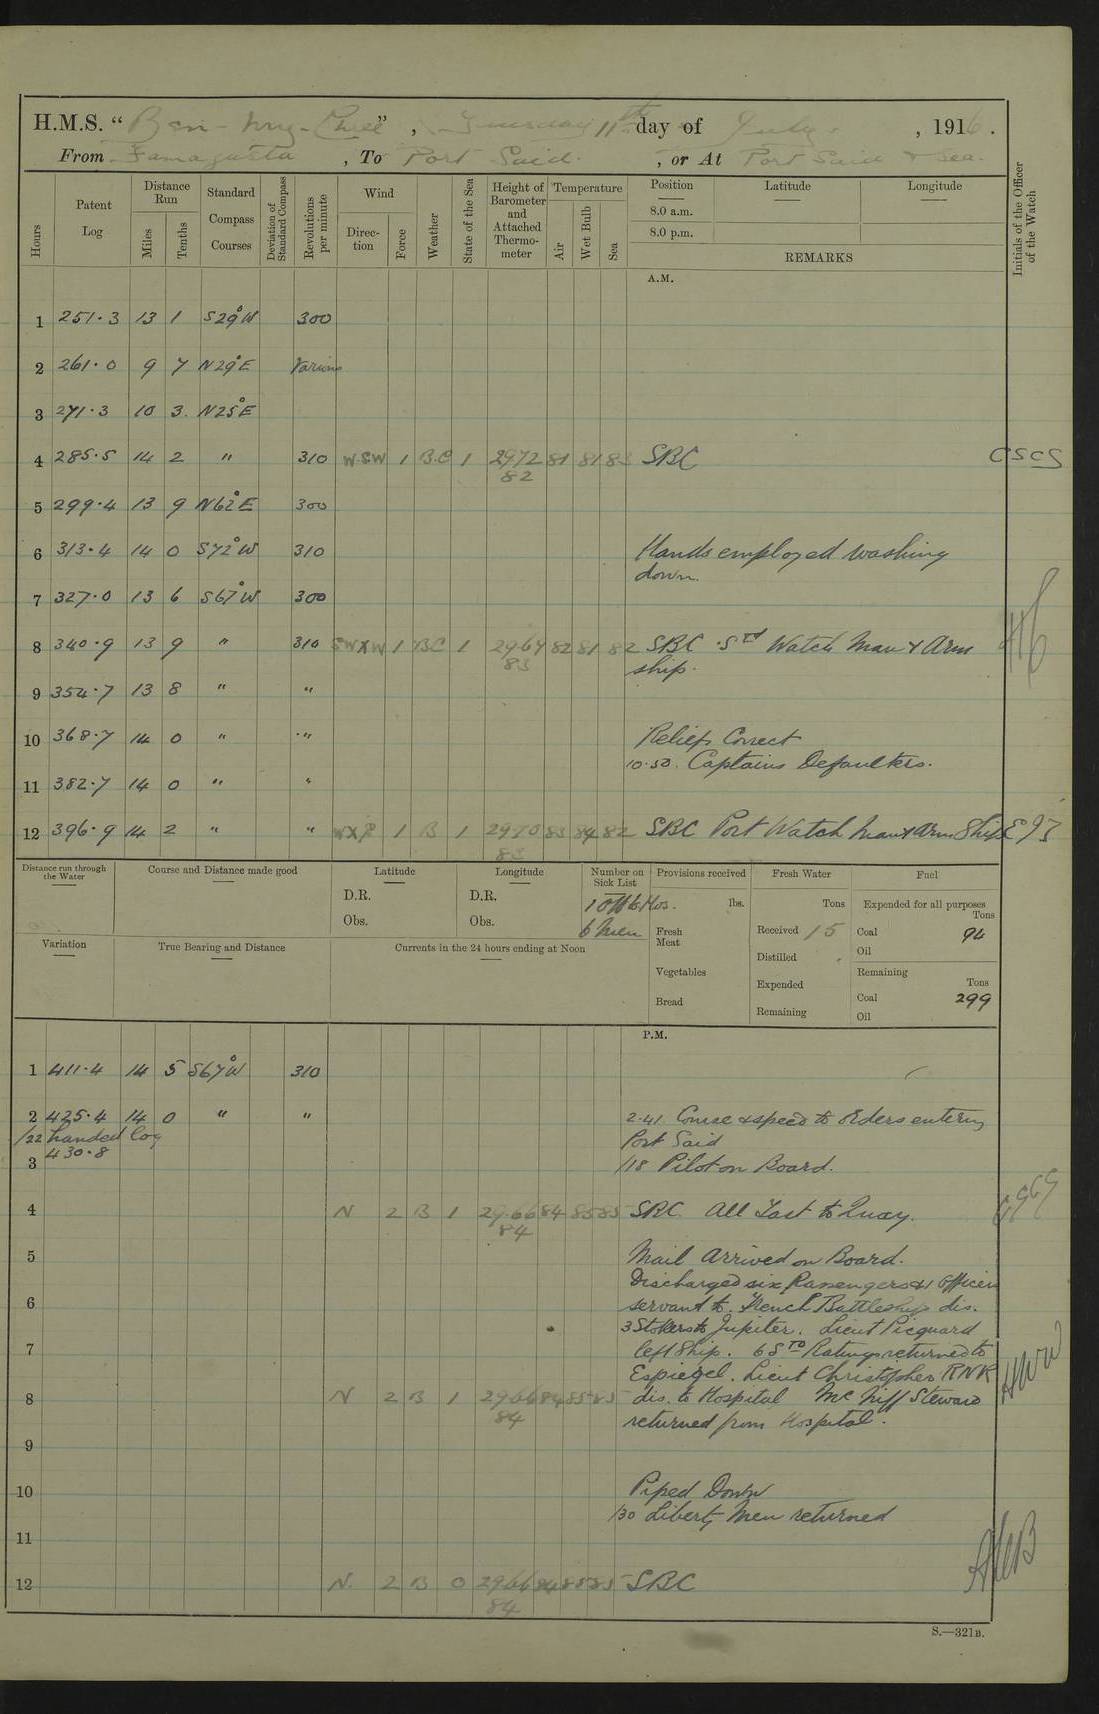 H.M.S. "Ben-my-Chree", Tuesday 11th day of July, 1916.
From Famagusta, To Port Said., or At Port Said & Sea.
Hours
Patent Log
Distance Run
Miles
Tenths
Standard Compass Courses
Deviation of Standard Compass
Revolutions per minute
Wind
Direction
Force
Weather
State of the Sea
Height of Barometer and Attached Thermometer
Temperature
Air
Wet Bulb
Sea
Position
Latitude
Longitude
8.0 a.m.
8.0 p.m.
REMARKS
Initials of the Officer of the Watch
A.M.
1 251.3 13 1 S29°W 300
2 261.0 9 7 N29°E Various
3 271.3 10 3. N25°E
4 285.5 14 2 " 310 WSW 1 B.C 1 2972 81 81 83 SBC CSCS
82
5 299.4 13 9 N62°E 300
6 313.4 14 0 S72°W 310 Hands employed washing
down.
7 327.0 13 6 S67°W 300
8 340.9 13 9 " 310 SWxW 1 BC 1 2967 82 81 82 SBC Std Watch Man & Arm
83 ship.
9 354.7 13 8 " "
10 368.7 14 0 " " Reliefs Correct
10.50. Captains Defaulters.
11 382.7 14 0 " "
12 396.9 14 2 " " 1 B 1 2970 83 84 82 SBC Port Watch Man & Arm Ship
Distance run through the Water
Course and Distance made good
Latitude
D.R.
Obs.
Longitude
D.R.
Obs.
Number on Sick List
6 Men
Provisions received
lbs.
Fresh Meat
Vegetables
Bread
Fresh Water
Tons
Received 15
Distilled
Expended
Remaining
Fuel
Expended for all purposes
Tons
Coal 94
Oil
Remaining
Tons
Coal 299
Oil
Variation
True Bearing and Distance
Currents in the 24 hours ending at Noon
P.M.
1 411.4 14 5 S67°W 310
2 425.4 14 0 " " 2.41 Course & speed to Orders entering
/22 handed log Port Said
430.8
3 /18 Pilot on Board.
4 N 2 B 1 29.66 84 85 85 SBC. All Fast to Quay.
84
5 Mail Arrived on Board.
Discharged six Passengers & 1 Officers
6 servant to. French Battleship dis.
3 Stokers to Jupiter. Lieut Picquard
7 left Ship. 6 Sto Ratings returned to
Espiegel. Lieut Christopher RNR
8 N 2 B 1 2966 84 85 85 dis. to Hospital Mc Niff Steward
84 returned from Hospital.
9
10 Piped Down
/30 Liberty Men returned
11
12 N. 2 B 0 2966 84 85 85 SBC
84
S.—321B.